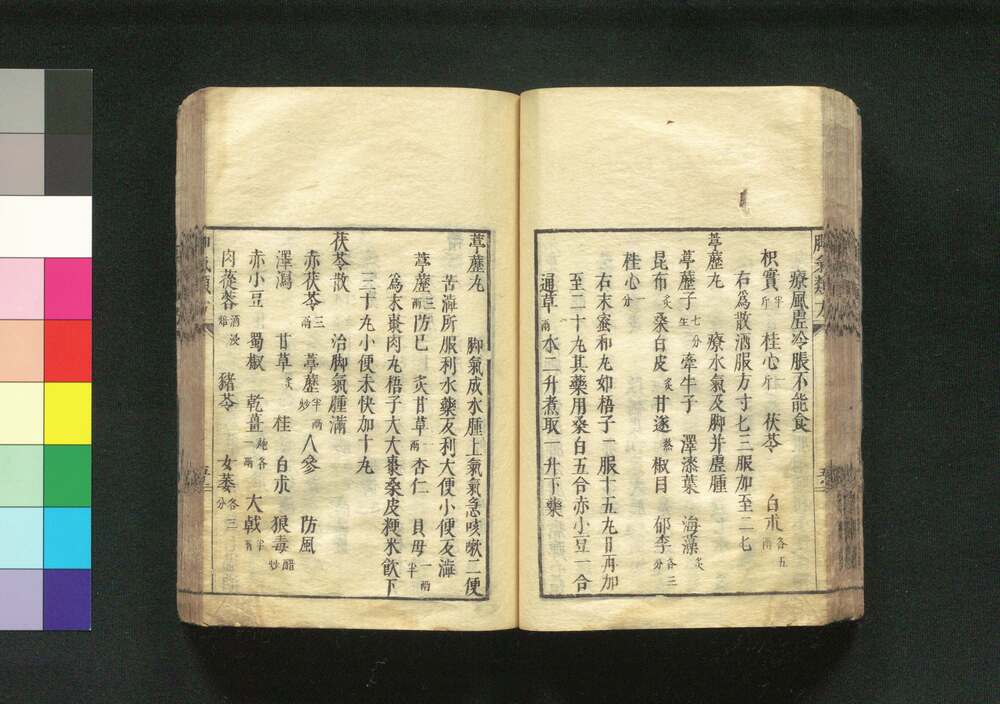 療風虚冷脹不能食
枳實半斤 桂心一斤 茯苓 白朮各五兩
右為散酒服方寸七三服加至二七
葶藶丸 療水氣及脚并虛腫
葶藶子七分生 牽牛子 澤漆葉 海藻炙
昆布炙 桑白皮炙 甘遂熬 椒目 郁李各三分
桂心一分
右末蜜和丸如梧子一服十五丸日再加
至二十丸其藥用桑白五合赤小豆一合
通草一兩水二升煮取一升下藥
葶藶丸 脚氣成水腫上氣氣急咳嗽二便
苦澁所服利水藥反利大便小便反澁
葶藶三兩 防巳 炙甘草一兩 杏仁 貝母一兩半
為末棗肉丸梧子大大棗桑皮粳米飲下
三十丸小便未快加十丸
茯苓散 治脚氣腫滿
赤茯苓三兩 葶藶半兩炒 人參 防風
澤瀉 甘草炙 桂 白朮 狼毒醋炒
赤小豆 蜀椒 乾薑炮各一兩 大戟半兩
肉蓯蓉酒浸焙 豬苓 女萎各三分
脚氣類方